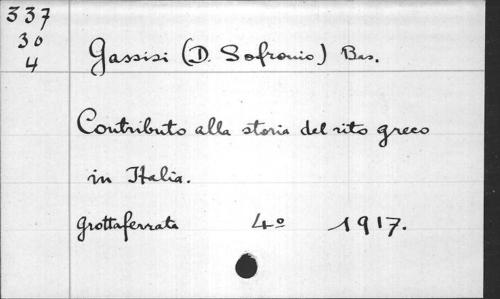 337
30
4
Gassisi (D. Sofronio) Bas.
Contributo alla storia del rito greco
in Italia.
Grottaferrata 4º 1917.